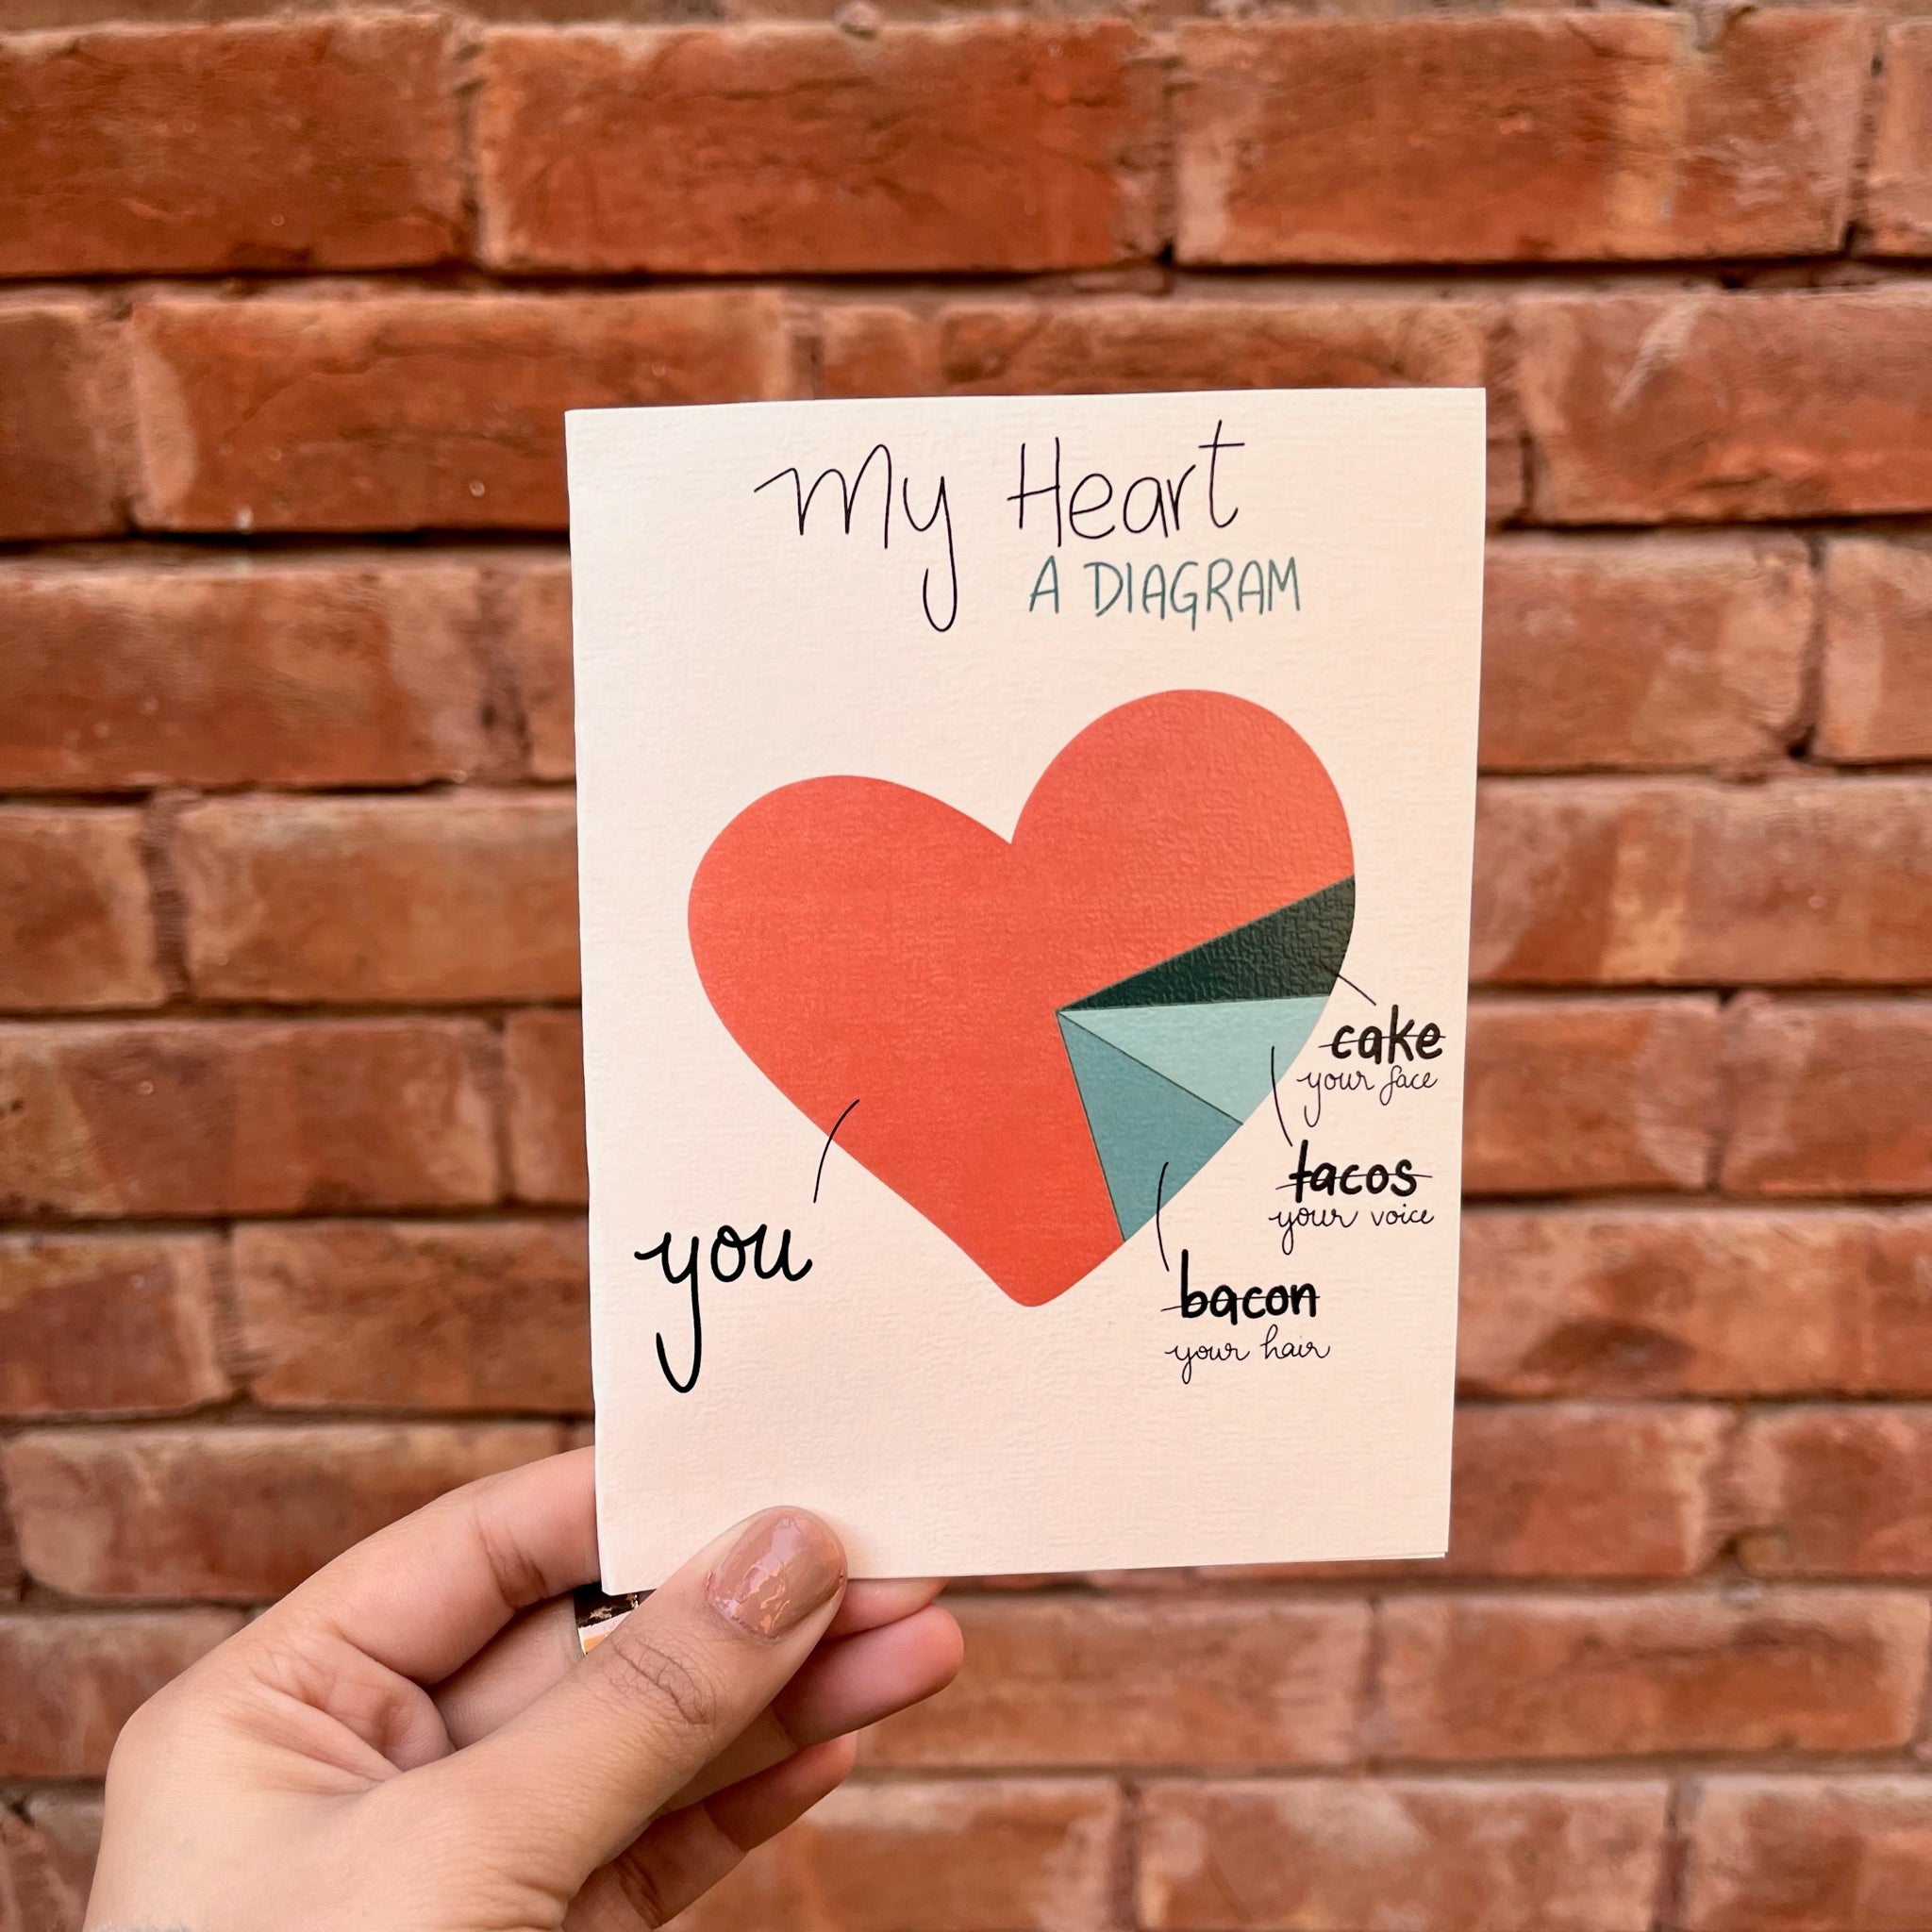 My Heart
A DIAGRAM
cake
your face
tacos
your voice
you
bacon
your hair